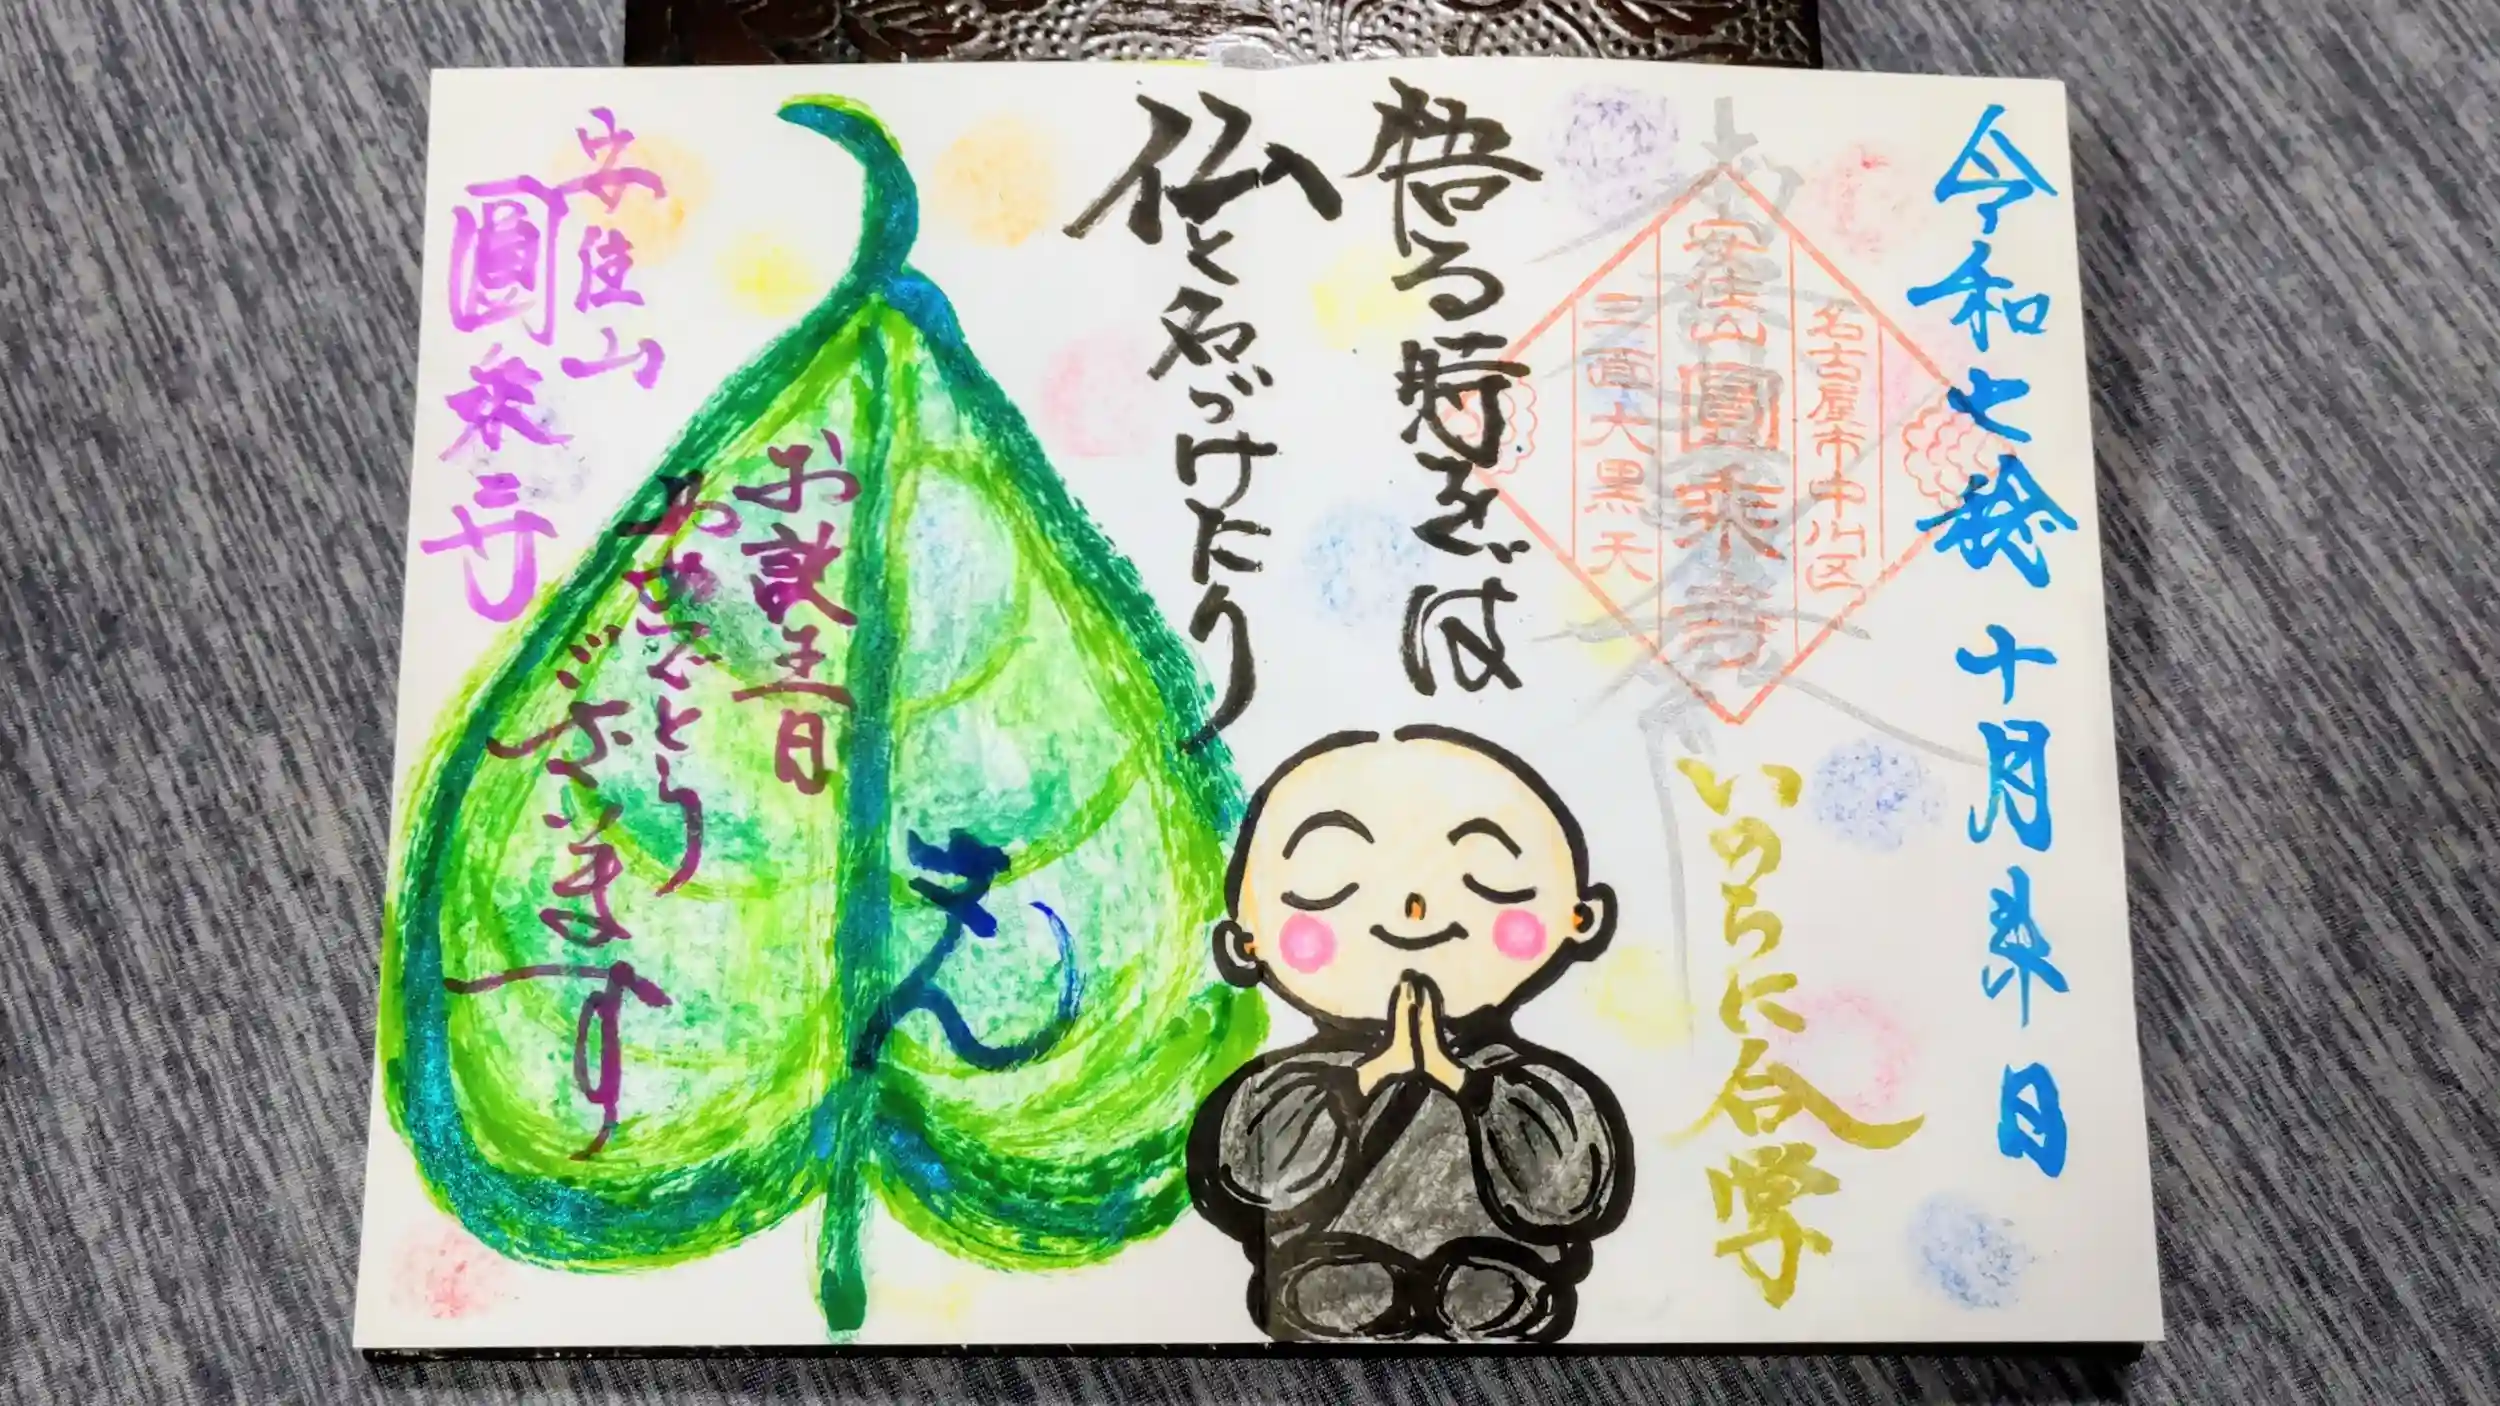 令和七稔 十月末日
名古屋市中川区
安住山圓乗寺
三面大黒天
いのちに合掌
悟る時をば
仏と名づけたり
お誕生日
おめでとう
ございます
安住山
圓乗寺